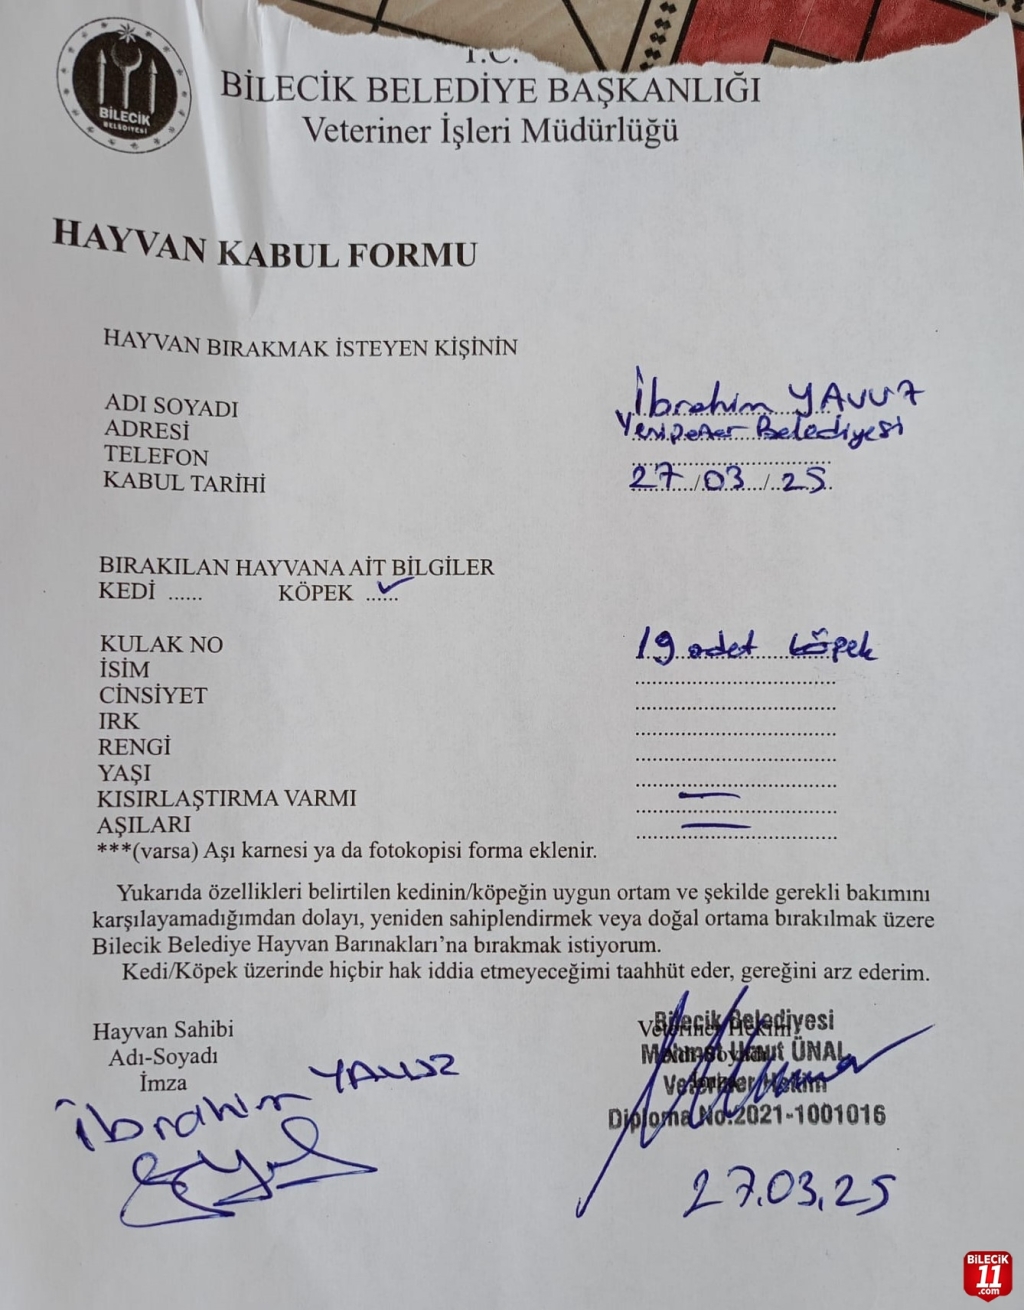 BİLECİK
BELEDİYESİ
T.C.
BİLECİK BELEDİYE BAŞKANLIĞI
Veteriner İşleri Müdürlüğü
HAYVAN KABUL FORMU
HAYVAN BIRAKMAK İSTEYEN KİŞİNİN
ADI SOYADI İbrahim YAVUZ
ADRESİ Yenipazar Belediyesi
TELEFON ..............................
KABUL TARİHİ 27/03/25
BIRAKILAN HAYVANA AİT BİLGİLER
KEDİ ...... KÖPEK ...✓...
KULAK NO 19 adet köpek
İSİM ..............................
CİNSİYET ..............................
IRK ..............................
RENGİ ..............................
YAŞI ..............................
KISIRLAŞTIRMA VARMI —
AŞILARI —
***(varsa) Aşı karnesi ya da fotokopisi forma eklenir.
Yukarıda özellikleri belirtilen kedinin/köpeğin uygun ortam ve şekilde gerekli bakımını
karşılayamadığımdan dolayı, yeniden sahiplendirmek veya doğal ortama bırakılmak üzere
Bilecik Belediye Hayvan Barınakları'na bırakmak istiyorum.
Kedi/Köpek üzerinde hiçbir hak iddia etmeyeceğimi taahhüt eder, gereğini arz ederim.
Hayvan Sahibi
Adı-Soyadı
İmza
İbrahim YAVUZ
Bilecik Belediyesi
Veteriner Hekim
Mehmet Umut ÜNAL
Veteriner Hekim
Diploma No:2021-1001016
27.03.25
BİLECİK
11
.com